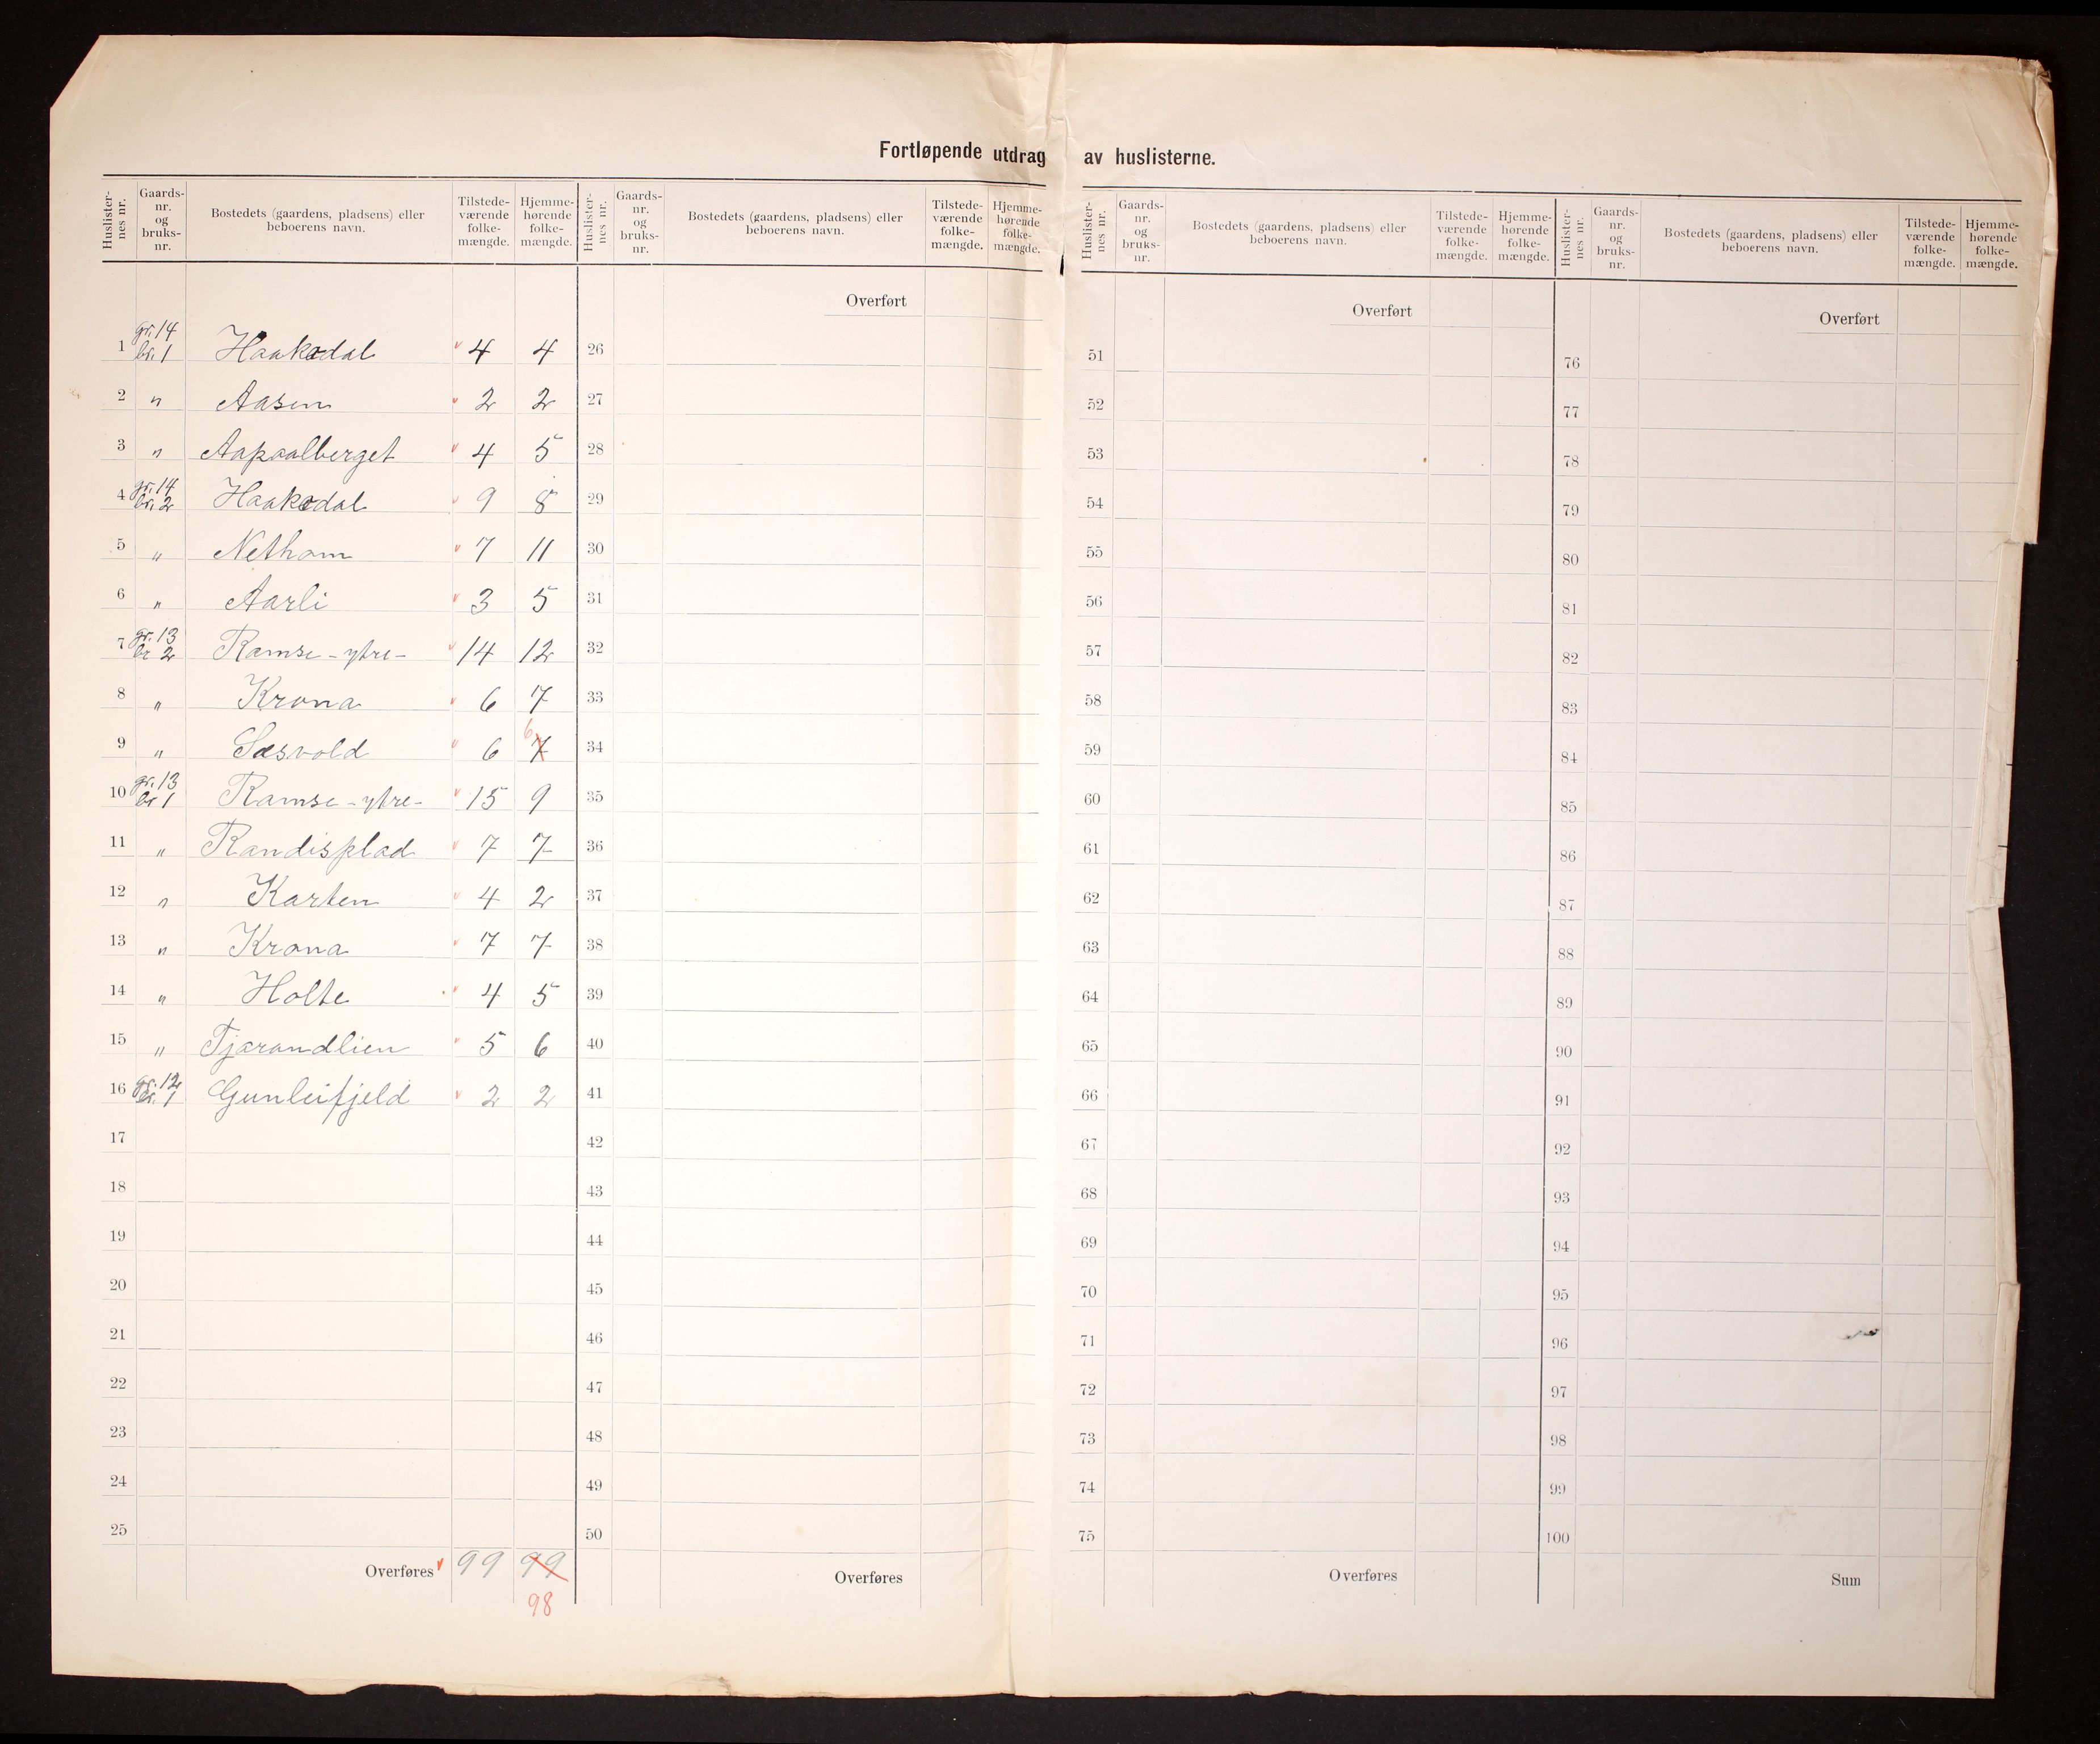 Fortløpende utdrag av huslisterne.
Huslister-nes nr. Gaards-nr. og bruks-nr. Bostedets (gaardens, pladsens) eller beboerens navn. Tilstede-værende folke-mængde. Hjemme-hørende folke-mængde.
1 gr. 14 br. 1 Haakedal 4 4
2 " Aasen 2 2
3 " Aapaalberget 4 5
4 gr. 14 br. 2 Haakedal 9 8
5 " Nethom 7 11
6 " Aarli 3 5
7 gr. 13 br 2 Ramse - ytre - 14 12
8 " Krona 6 7
9 " Sæsvold 6 7 6
10 gr. 13 br 1 Ramse - ytre - 15 9
11 " Randisplad 7 7
12 " Karten 4 2
13 " Krona 7 7
14 " Holte 4 5
15 " Tjarandlien 5 6
16 gr. 12 br. 1 Gunleifjeld 2 2
17
18
19
20
21
22
23
24
25
Overføres 99 99
98
Huslister-nes nr. Gaards-nr. og bruks-nr. Bostedets (gaardens, pladsens) eller beboerens navn. Tilstede-værende folke-mængde. Hjemme-hørende folke-mængde.
Overført
26
27
28
29
30
31
32
33
34
35
36
37
38
39
40
41
42
43
44
45
46
47
48
49
50
Overføres
Huslister-nes nr. Gaards-nr. og bruks-nr. Bostedets (gaardens, pladsens) eller beboerens navn. Tilstede-værende folke-mængde. Hjemme-hørende folke-mængde.
Overført
51
52
53
54
55
56
57
58
59
60
61
62
63
64
65
66
67
68
69
70
71
72
73
74
75
Overføres
Huslister-nes nr. Gaards-nr. og bruks-nr. Bostedets (gaardens, pladsens) eller beboerens navn. Tilstede-værende folke-mængde. Hjemme-hørende folke-mængde.
Overført
76
77
78
79
80
81
82
83
84
85
86
87
88
89
90
91
92
93
94
95
96
97
98
99
100
Sum